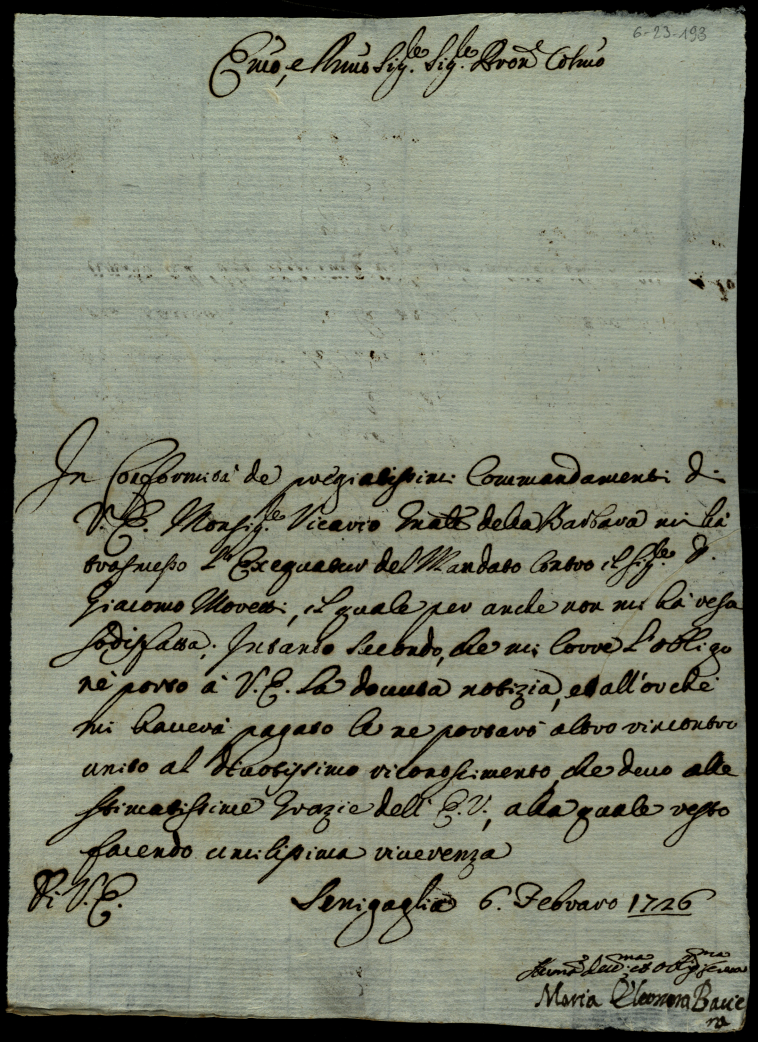 6-23-193
Emo, e Rmo Sig.re Sig.re Pron.e Colmo
In Conformità de pregiatissimi Commandamenti di
V. E. Monsig.re Vicario Gnale della Barbara mi hà
trasmesso l'Exequatur del Mandato Contro il Sig.re D.
Giacomo Moretti, il quale per anche non mi hà resa
sodisfatta; Intanto secondo, che mi corre l'obligo
nè porto à V. E. la douuta notizia, et all'or che
mi hauerà pagato le ne portarò altro rincontro
unito al diuotissimo riconoscimento, che deuo alle
stimatissime Grazie dell'E. V., alla quale resto
facendo umilissima riuerenza
Di V. E.
Senigaglia 6. Febraro 1726
deu.ma et obblig.ma serua
Maria Eleonora Baue
ra